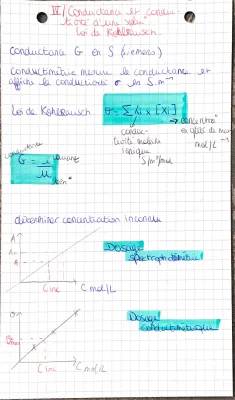 VI/ Conductance et conduc-
tivité d'une solu°
Loi de Kohlrausch
Conductance G en S (siemens)
Conductimètre mesure la conductance et
affiche la conductivité σ en S.m⁻¹
Loi de Kohlrausch σ = Σ λi × [Xi]
→ concentra°
conduc-
tivité molaire
ionique
S/m²/mol
mol/L⁻¹
conductance
G = i/u
courant
déterminer concentration inconnue
A
A
Dosage
spectrophotométrique
C inc C mol/L
σ
Dosage
conductimétrique
C inc C mol/L